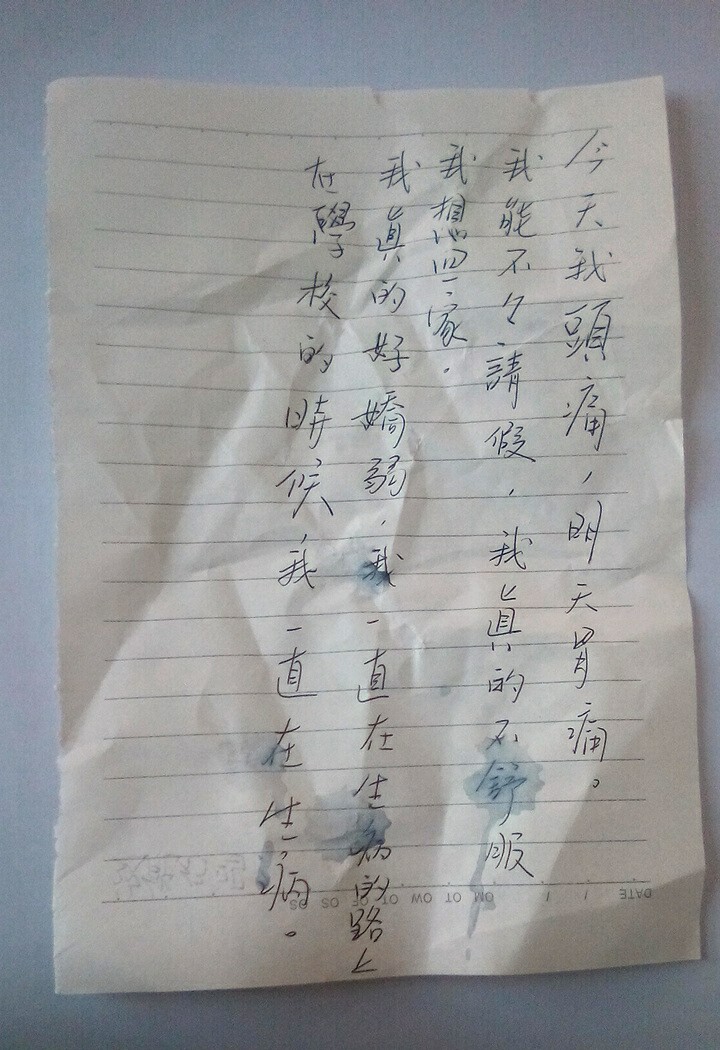 今天我頭痛，明天胃痛。
我能不能請假，我真的不舒服
我想回家.
我真的好嬌弱，我一直在生病的路上
在學校的時候，我一直在生病。
DATE / /